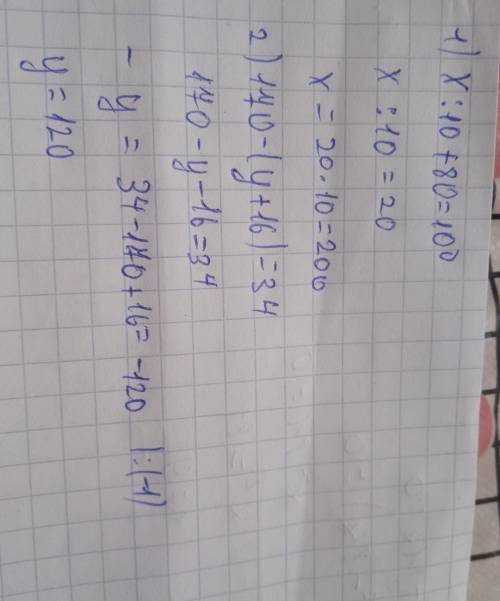 1) x:10+80=100
x:10=20
x=20·10=200
2) 170-(y+16)=34
170-y-16=34
-y=34-170+16=-120 |:(-1)
y=120